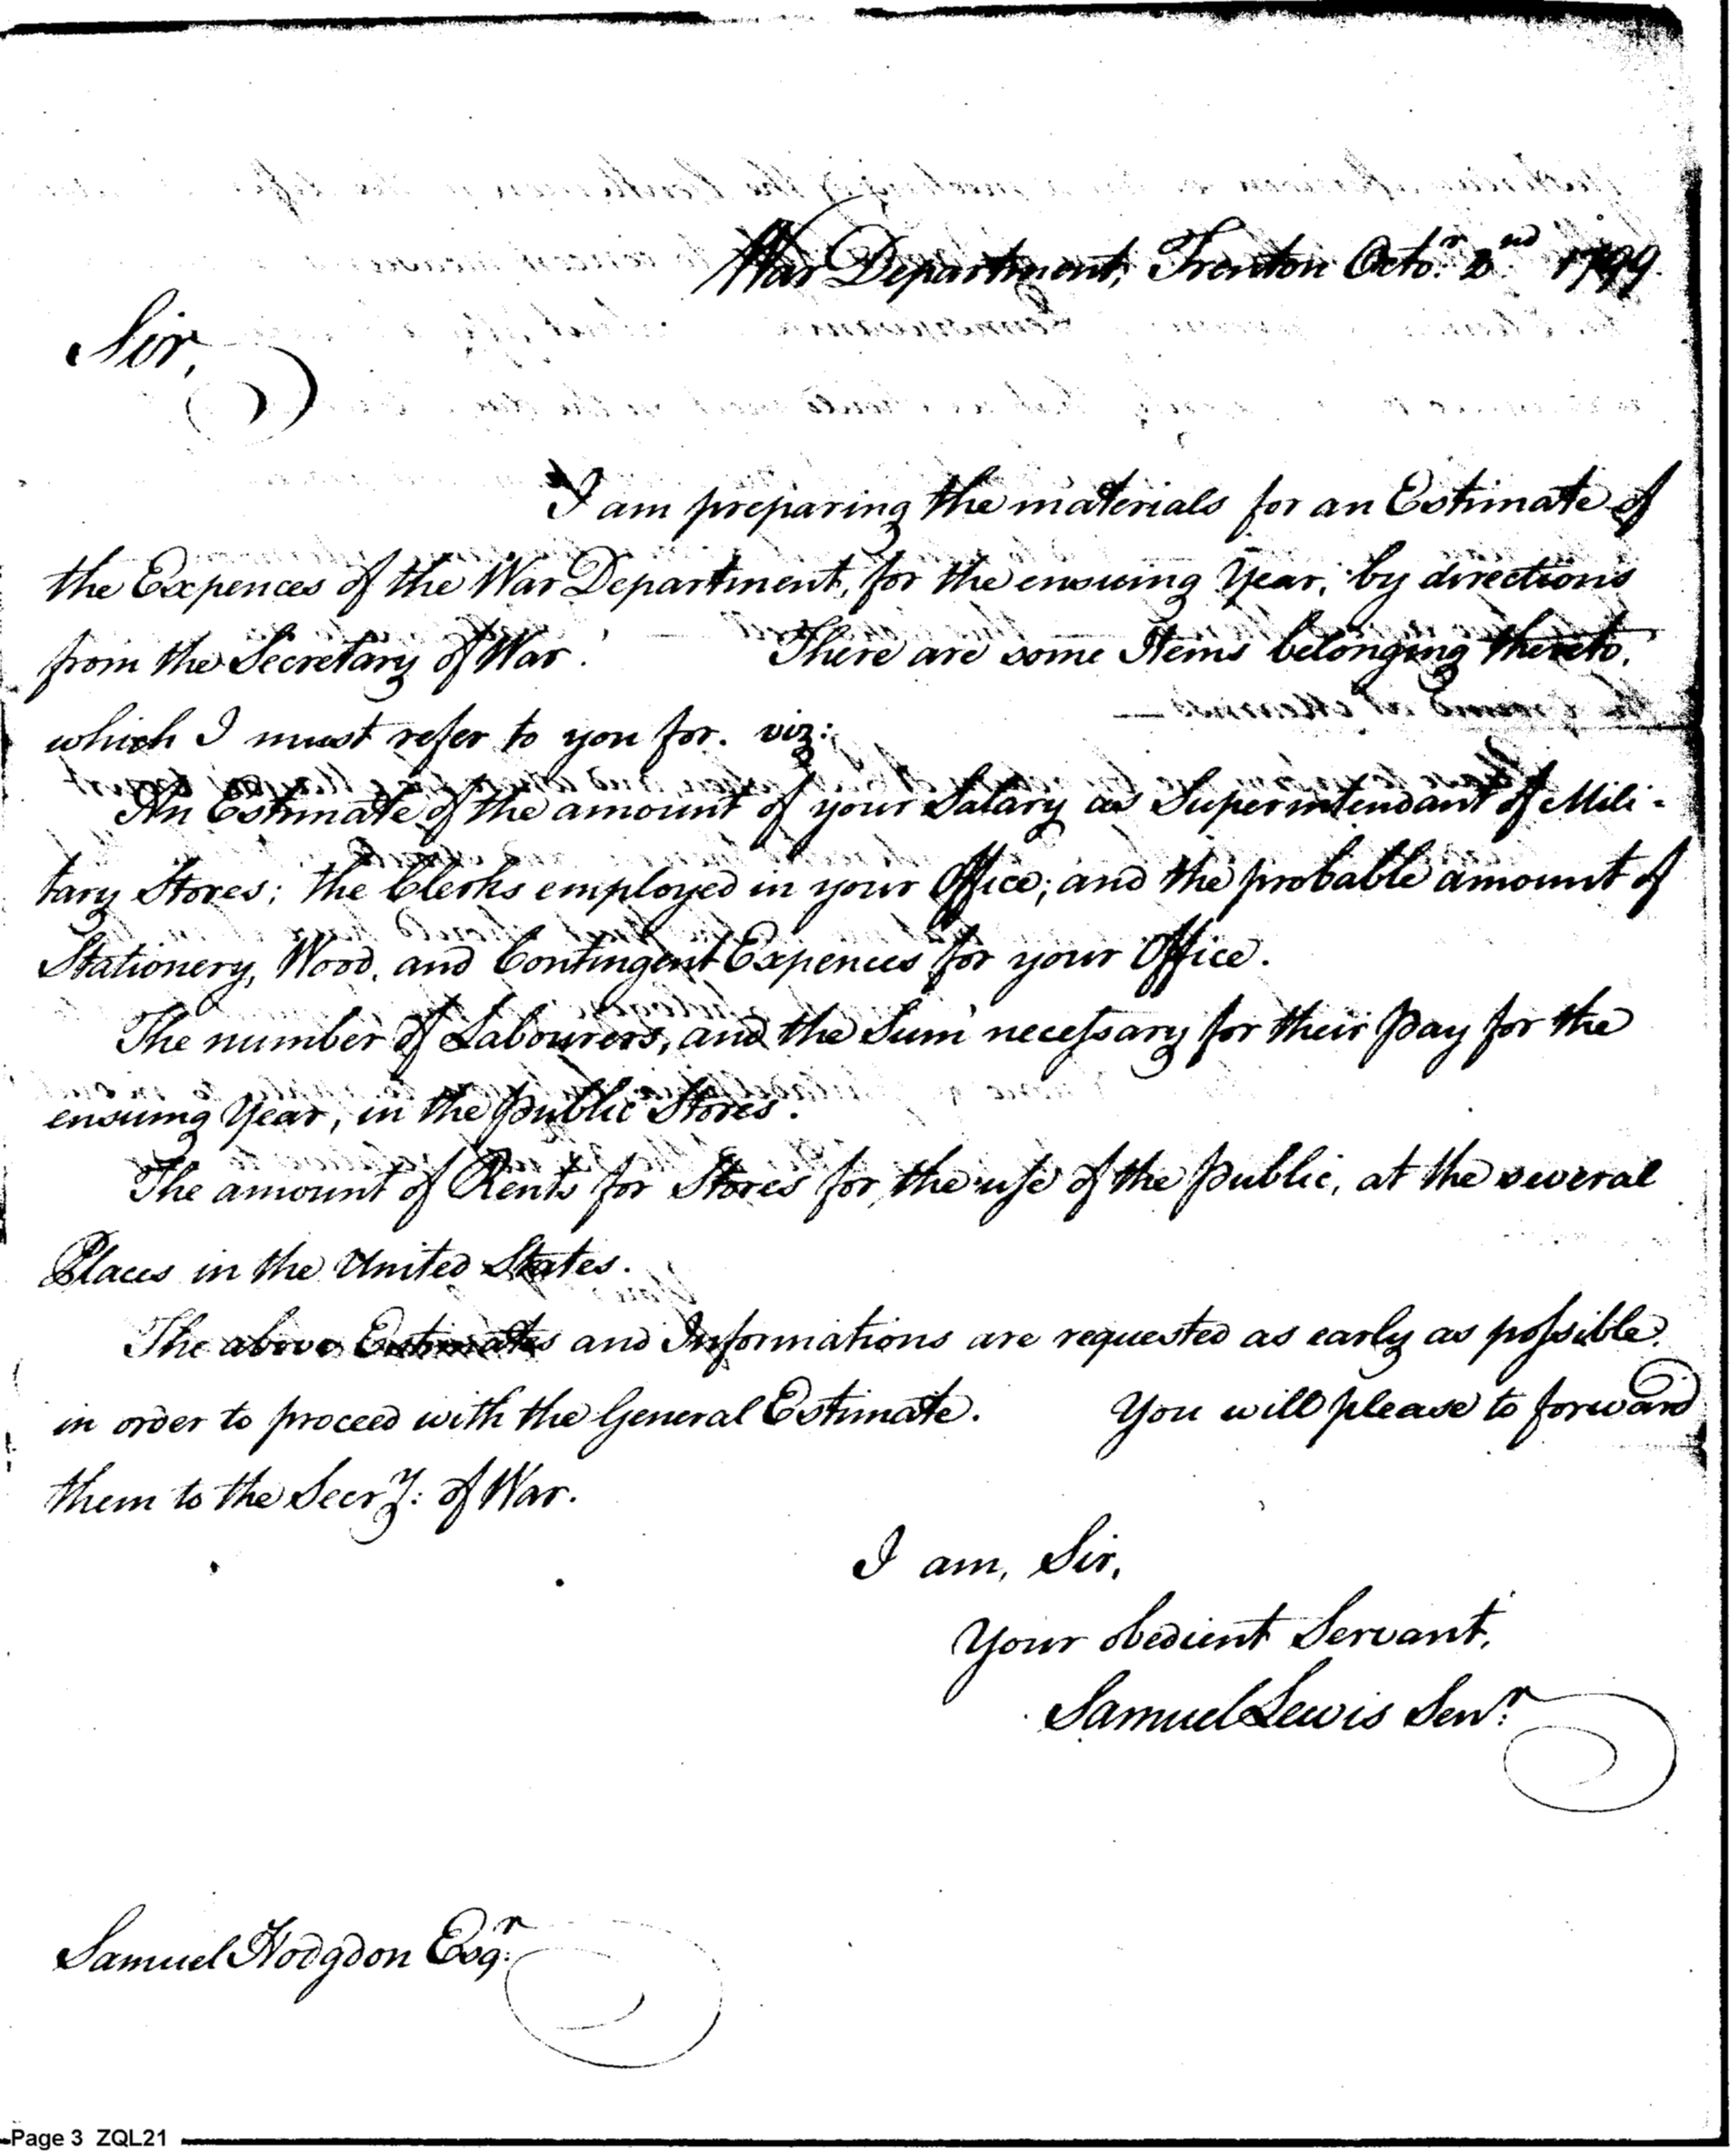 War Department, Trenton Octo.r 2nd 1799.
Sir,
I am preparing the materials for an Estimate of
the Expences of the War Department, for the ensuing Year, by directions
from the Secretary of War. There are some Items belonging thereto,
which I must refer to you for. viz:
An Estimate of the amount of your Salary as Superintendant of Mili-
tary Stores; the Clerks employed in your Office; and the probable amount of
Stationery, Wood, and Contingent Expences for your Office.
The number of Labourers, and the Sum necessary for their Pay for the
ensuing Year, in the public Stores.
The amount of Rents for Stores for the use of the Public, at the several
Places in the United States.
The above Estimates and Informations are requested as early as possible,
in order to proceed with the General Estimate. You will please to forward
them to the Secry: of War.
I am, Sir,
Your obedient Servant,
Samuel Lewis Senr.
Samuel Hodgdon Esqr.
Page 3 ZQL21